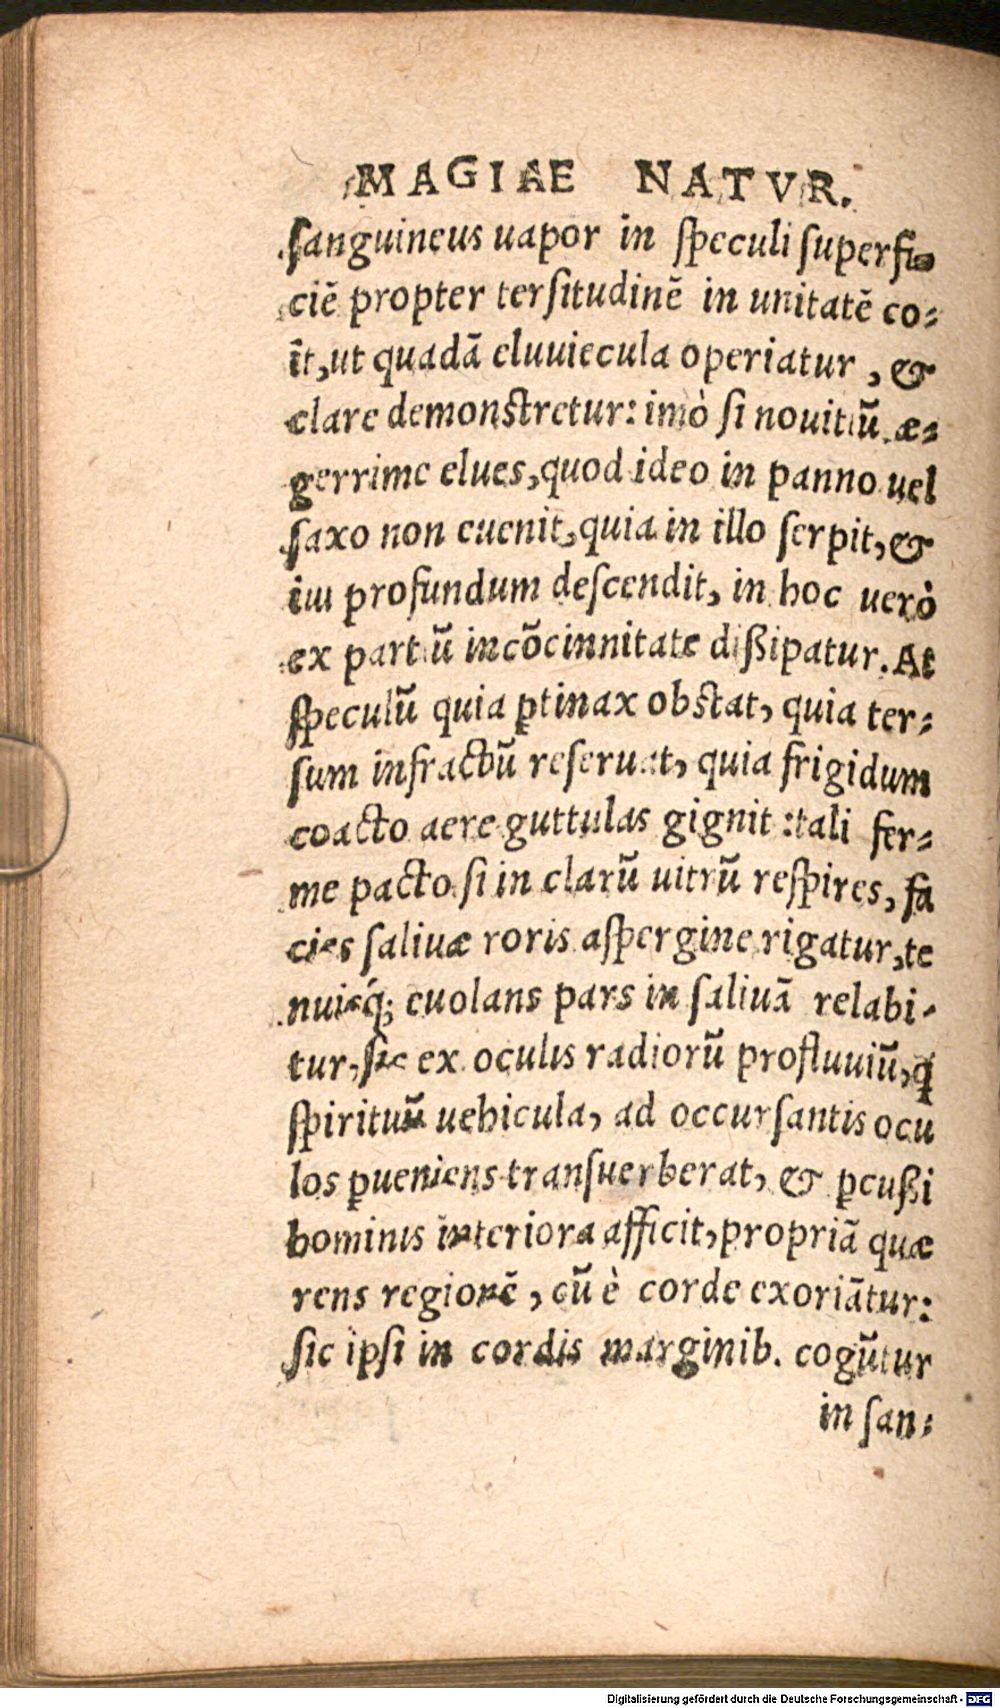 MAGIAE NATVR.
sanguineus uapor in speculi superfi-
ciē propter tersitudinē in unitatē co-
īt, ut quadā eluuiecula operiatur, &
clare demonstretur: imò si nouitiū æ-
gerrime elues, quod ideo in panno uel
saxo non euenit, quia in illo serpit, &
in profundum descendit, in hoc uerò
ex partiū incōcinnitate dißipatur. At
speculū quia ꝑtinax obstat, quia ter-
sum infractū reseruat, quia frigidum
coacto aere guttulas gignit: tali fer-
me pacto si in clarū uitrū respires, fa
cies saliuæ roris aspergine rigatur, te
nuisq́; euolans pars in saliuā relabi-
tur, sic ex oculis radiorū profluuiū, ꝗ
spirituū uehicula, ad occursantis ocu
los ꝑueniens transuerberat, & ꝑcußi
hominis interiora afficit, propriā quæ
rens regionē, cū è corde exoriātur:
sic ipsi in cordis marginib. cogūtur
in san-
Digitalisierung gefördert durch die Deutsche Forschungsgemeinschaft - DFG